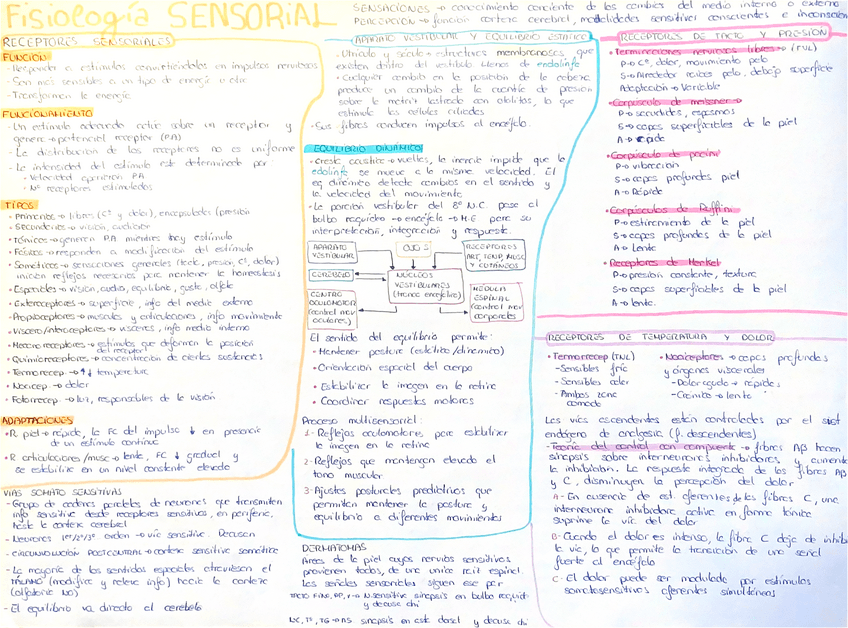 Fisiología SENSORIAL
SENSACIONES → conocimiento conciente de los cambios del medio interno o externo
PERCEPCION → función corteza cerebral, modalidades sensitivas conscientes e inconscien
RECEPTORES SENSORIALES
FUNCIÓN
- Responder a estimulos convirtiéndolos en impulsos nerviosos
- Son mas sensibles a un tipo de energía u otra
- Transforman la energía
FUNCIONAMIENTO
- Un estimulo adecuado actúa sobre un receptor y
genera → potencial receptor (PA)
- La distribucion de los receptores no es uniforme
- La intensidad del estimulo esta determinada por:
• Velocidad aparicion PA
• Nº receptores estimulados
TIPOS
• Primarios → libres (Cº y dolor), encapsulados (presión
• Secundarios → visión, audición
• Tónicos → generan PA mientras hay estímulo
• Fásicos → responden a modificación del estímulo
• Somáticos → sensaciones generales (tacto, presión, Cº, dolor)
inician reflejos necesarios para mantener la homeostasis
• Especiales → vision, audio, equilibrio, gusto, olfato
• Exteroceptores → superficie, info del medio externo
• Propioceptores → musculos y articulaciones, info movimiento
• Viscero/interoceptores → visceras, info medio interno
• Mecanoreceptores → estimulos que deforman la posición
del receptor
• Quimiorreceptores → concentración de ciertas sustancias
• Termorecep → ↑↓ temperatura
• Nocicep → dolor
• Fotorrecep → luz, responsables de la visión
ADAPTACIONES
• R piel → rápida, la FC del impulso ↓ en presencia
de un estimulo continuo
• R articulaciones/musc → lenta, FC ↓ gradual y
se estabiliza en un nivel constante elevado
VIAS SOMATO SENSITIVAS
- Grupo de cadenas paralelas de neuronas que transmiten
info sensitiva desde receptores sensitivos, en periferia,
hasta la corteza cerebral
- Neuronas 1er/2º/3º orden → vía sensitiva. Decusan
- CIRCUNVOLUCIÓN POSTCENTRAL → corteza sensitiva somática
- La mayoria de los sentidos especiales atraviesan el
TALAMO (modifica y releva info) hacia la corteza
(olfatoria NO)
- El equilibrio va directo al cerebelo
APARATO VESTIBULAR Y EQUILIBRIO ESTÁTICO
- Utriculo y saculo → estructuras membranosas que
existen dentro del vestibulo llenas de endolinfa
• Cualquier cambio en la posicion de la cabeza
produce un cambio de la cuantía de presion
sobre la matriz lastrada con otolitos, lo que
estimula las celulas ciliadas
- Sus fibras conducen impulsos al encéfalo.
EQUILIBRIO DINÁMICO
- Cresta acustica → vueltas, la inercia impide que la
edolinfa se mueva a la misma velocidad. El
eq dinamico detecta cambios en el sentido y
la velocidad del movimiento.
• La porción vestibular del 8º N.C. pasa al
bulbo raquideo → encéfalo → M.E para su
interpretación, integración y respuesta.
APARATO VESTIBULAR
OJOS
RECEPTORES ART, TEND, MUSC Y CUTÁNEOS
CEREBELO
NÚCLEOS VESTIBULARES (tronco encefálico)
CENTRO OCULOMOTOR (control mov oculares)
MÉDULA ESPINAL (control mov corporales)
El sentido del equilibrio permite:
• Mantener postura (estática/dinámica)
• Orientación espacial del cuerpo
• Estabilizar la imagen en la retina
• Coordinar respuestas motoras
Proceso multisensorial:
1- Reflejos oculomotores, para estabilizar
la imagen en la retina
2- Reflejos que mantengan elevado el
tono muscular
3- Ajustes posturales predictivos que
permitan mantener la postura y
equilibrio a diferentes movimientos
DERMATOMAS
Areas de la piel cuyos nervios sensitivos
provienen todos, de una unica raíz espinal.
Las señales sensoriales siguen ese par
y decusa ahi
RECEPTORES DE TACTO Y PRESIÓN
• Terminaciones nerviosas libres → (TNL)
P → Cº, dolor, movimiento pelo
S → Alrededor raices pelo, debajo superficie
Adaptación → Variable
• Corpúsculo de meissner →
P → sacudidas, espasmos
S → capas superficiales de la piel
A → rápida
• Corpúsculo de pacini
P → vibracion
S → capas profundas piel
A → Rápida
• Corpúsculos de Ruffini
P → estiramiento de la piel
S → capas profundas de la piel
A → Lenta
• Receptores de Merkel
P → presión constante, textura
S → capas superficiales de la piel
A → lenta.
RECEPTORES DE TEMPERATURA Y DOLOR
• Termorrecep (TNL)
- Sensibles frío
- Sensibles calor
- Ambos zona
comoda
• Nociceptores → capas profundas
y órganos viscerales
- Dolor agudo → rápidas
- Crónico → lenta
Las vías ascendentes están controladas por el sist
endógeno de analgesia (f. descendentes)
- Teoría del control con compuerta → fibras Aβ hacen
sinapsis sobre interneuronas inhibidoras, y aumenta
la inhibición. La respuesta integrada de las fibras Aβ
y C, disminuyen la percepción del dolor
A - En ausencia de est. aferentes de las fibras C, una
interneurona inhibidora activa en forma tónica
suprime la vía del dolor
B - Cuando el dolor es intenso, la fibra C deja de inhib
la vía, lo que permite la transición de una señal
fuerte al encéfalo
C - El dolor puede ser modulado por estímulos
somatosensitivos aferentes simultáneos